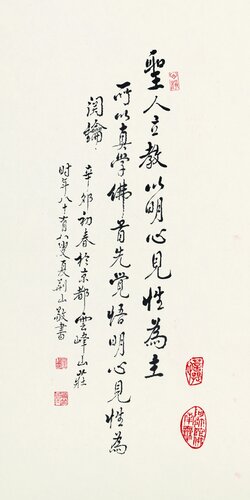 聖人立教以明心見性為主
所以真学佛首先覚悟明心見性為
関鑰
辛卯初春於京都雲峰山莊
时年八十有八叟夏荆山敬書